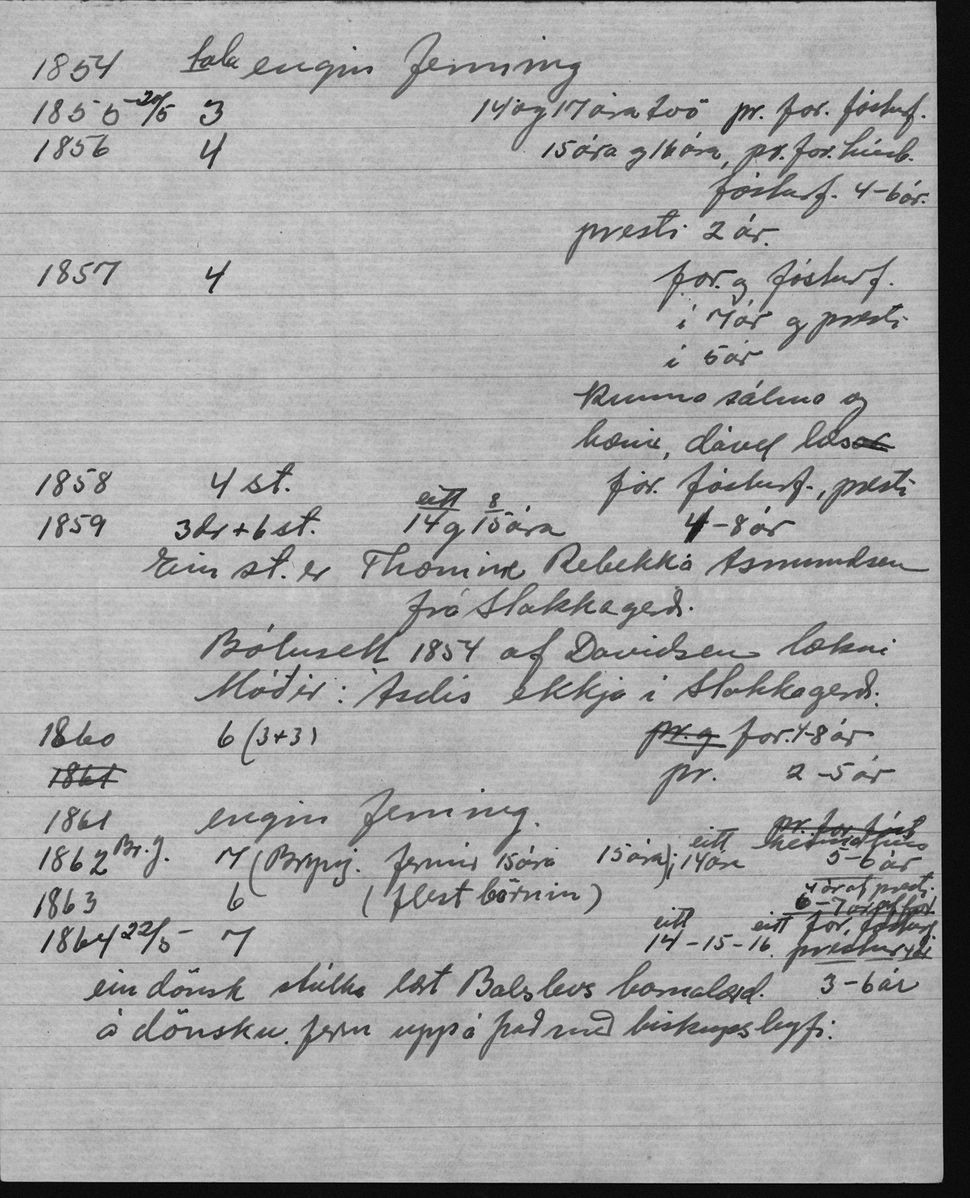 1854 tala engin ferming
1855 20/5 3 14 og 17 ára tvö pr. for. fósturf.
1856 4 15 ára og 16 ára, pr. for. húsb.
fósturf. 4-6 ár.
presti 2 ár.
1857 4 for. og fósturf.
í 7 ár og presti
í 5 ár
kunna sálma og
bænir, dável læsar
1858 4 st. for. fósturf., presti
1859 3 dr + 6 st. eitt 14 og 8 15 ára 4-8 ár
Ein st. er Thomine Rebekka Asmundsen
frá Stakkagerði.
Bólusett 1854 af Davidsen lækni
Móðir: Ásdís ekkja í Stakkagerði.
1860 6 (3+3) pr. og for. 4-8 ár
1861 pr. 2-5 ár
1861 engin ferming.
1862 Br. J. 7 (Brynj. fermir 15 ára 15 ára); eitt 14 ára 5-6 ár
1863 6 (flest börnin) 6-7 ár
1864 22/5 7 eitt 14-15-16 eitt for.
ein dönsk stúlka lært Balslevs barnalærd. 3-6 ár
á dönsku. ferm upp á það með biskups leyfi.